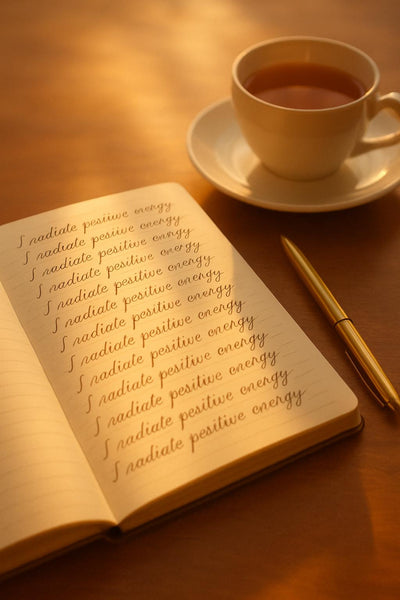 I radiate pesiiive energy
I radiate pesiiive energy
I radiate pesitive energy
I radiate pesitive energy
I radiate pesitive energy
I radiate positive energy
I radiate positive energy
I radiate positive energy
I radiate positive energy
I radiate positive energy
I radiate positive energy
I radiate positive energy
I radiate positive energy